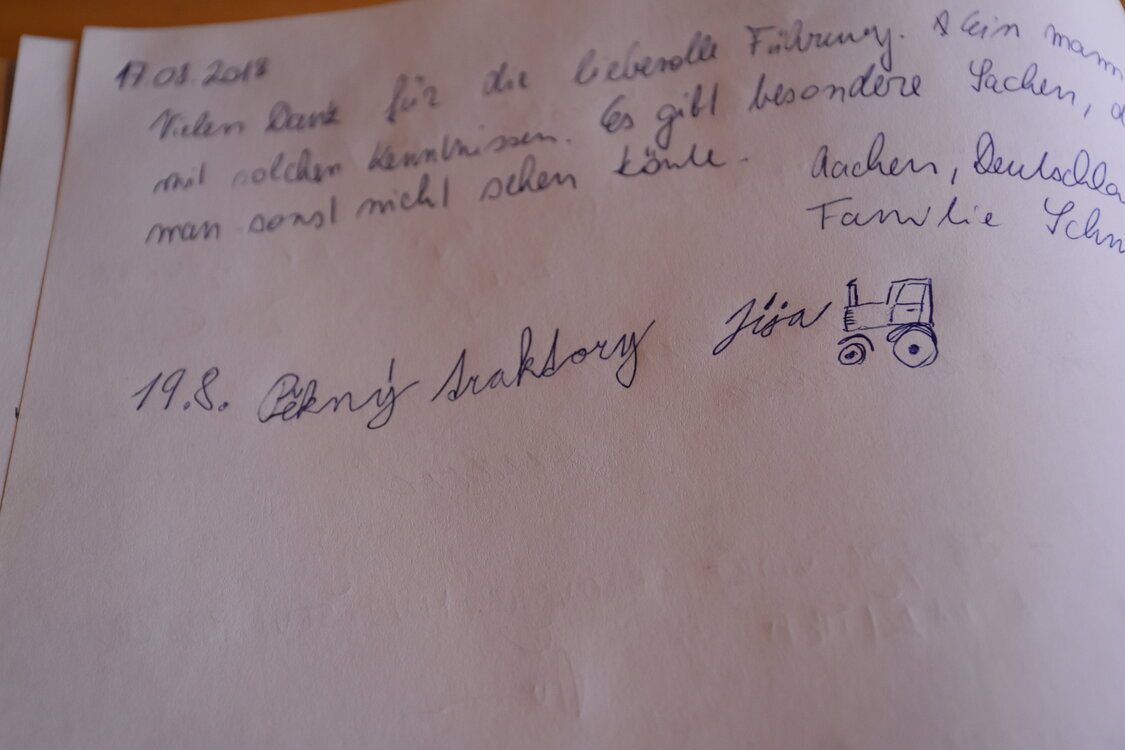 17.08.2018
Vielen Dank für die liebevolle Führung. Klein mann
mit solchen Kenntnissen. Es gibt besondere Sachen, d
man sonst nicht sehen könte. Aachen, Deutschla
Familie Schm
19.8. Pěkný traktory Jíša